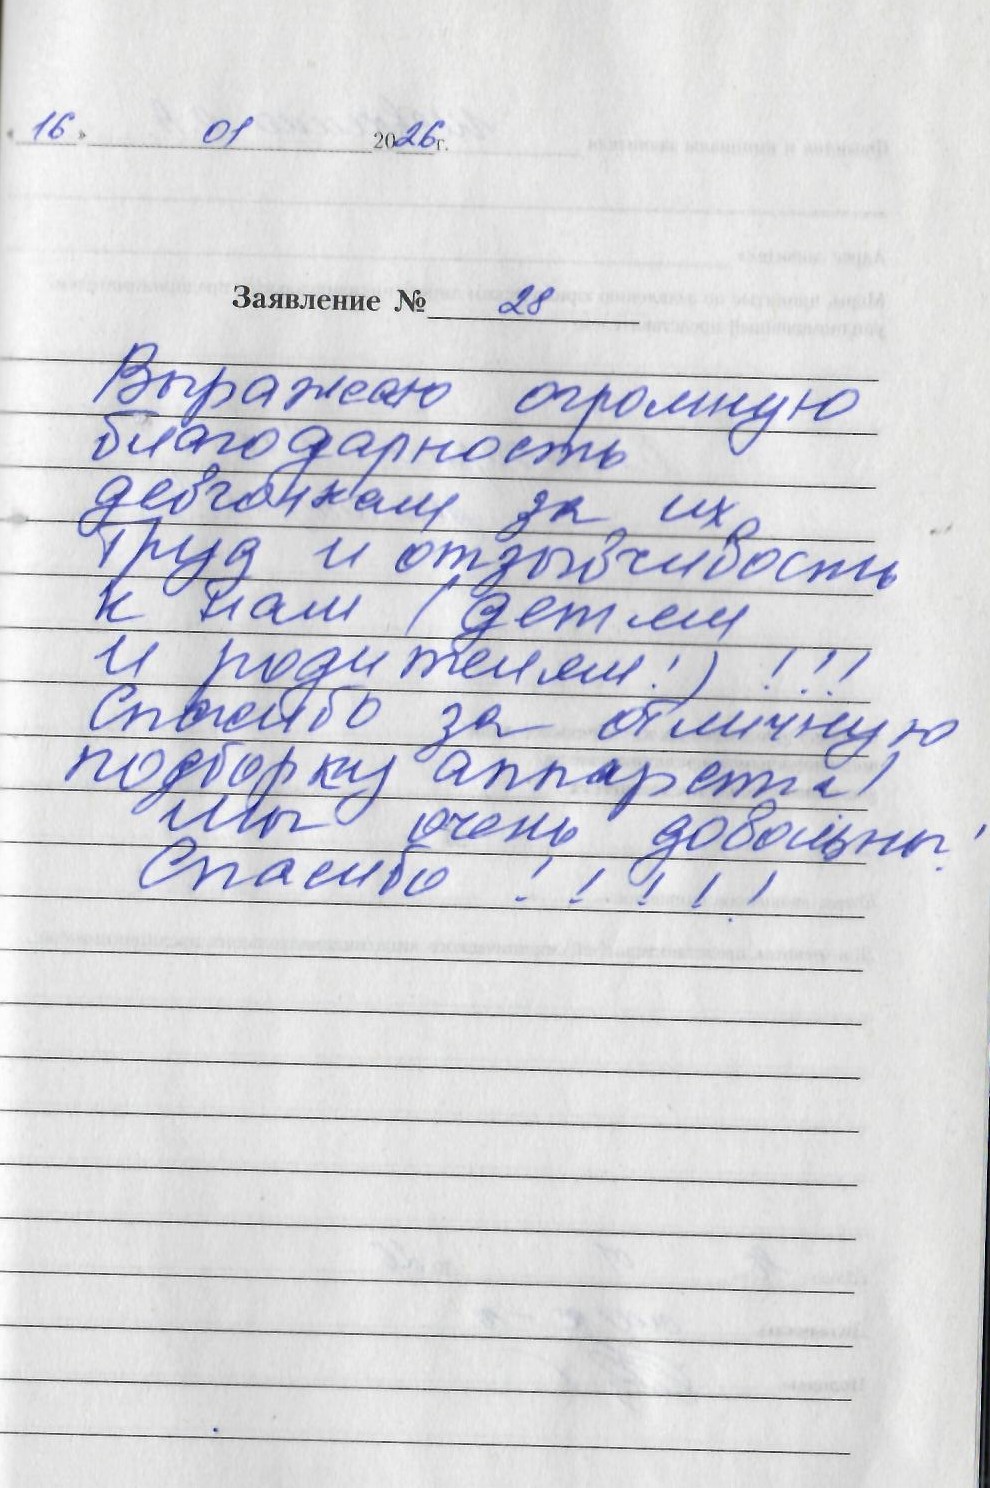 « 16 » 01 2026 г.
Заявление № 28
Выражаю огромную
благодарность
девчонкам за их
труд и отзывчивость
к нам (детям
и родителям!) !!!
Спасибо за отличную
подборку аппарата!
Мы очень довольны!
Спасибо !!!!!!